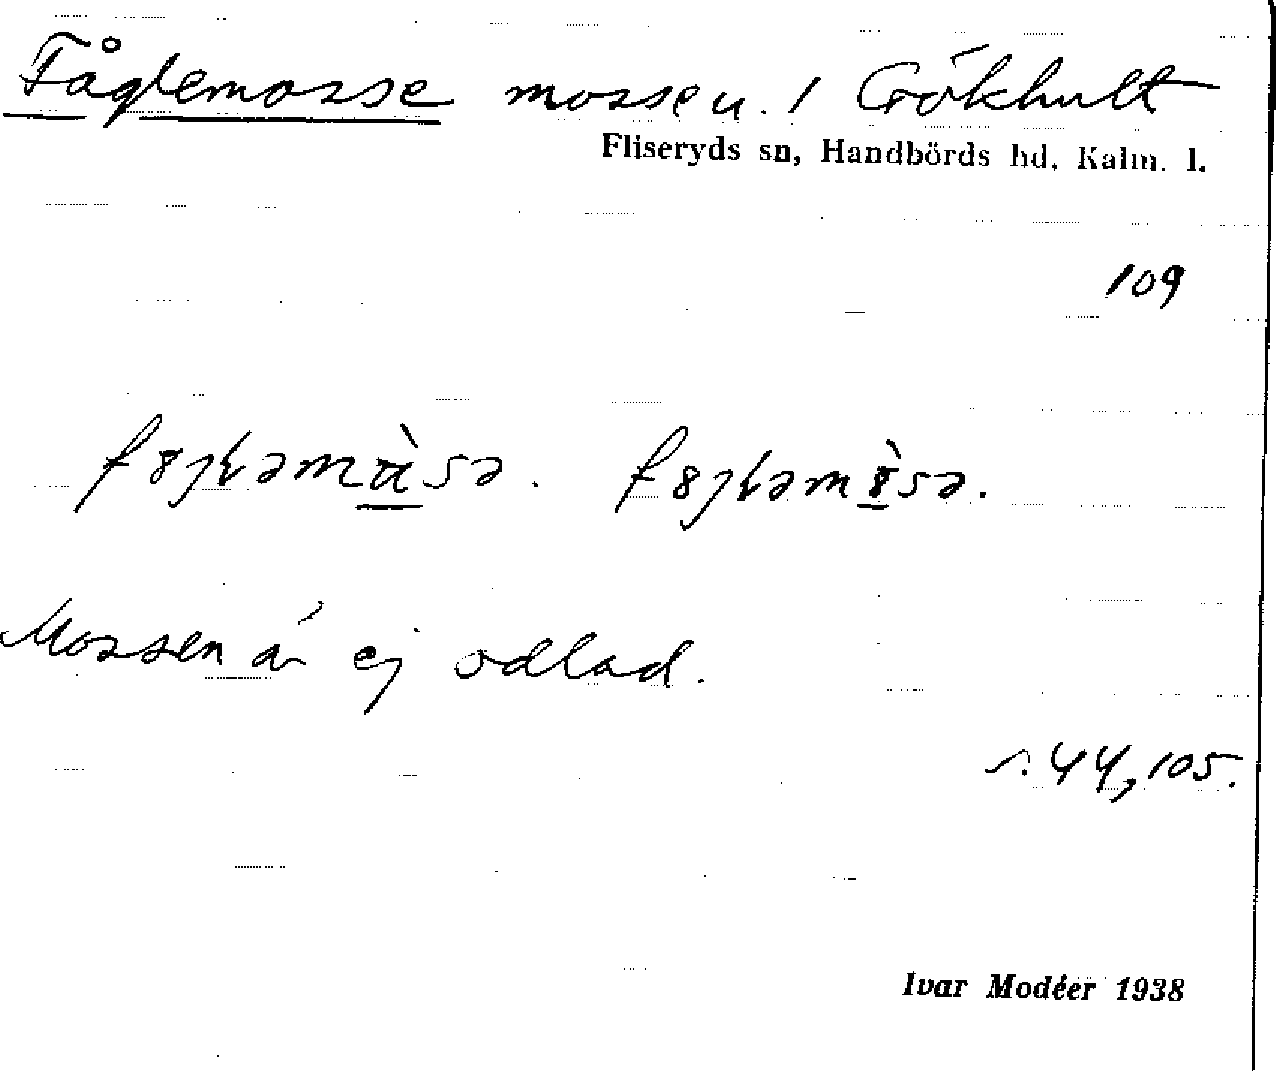 Fåglemosse mossen. / Gökhult
Fliseryds sn, Handbörds hd, Kalm. l.
109
Mossen är ej odlad.
s. 44, 105.
Ivar Modéer 1938